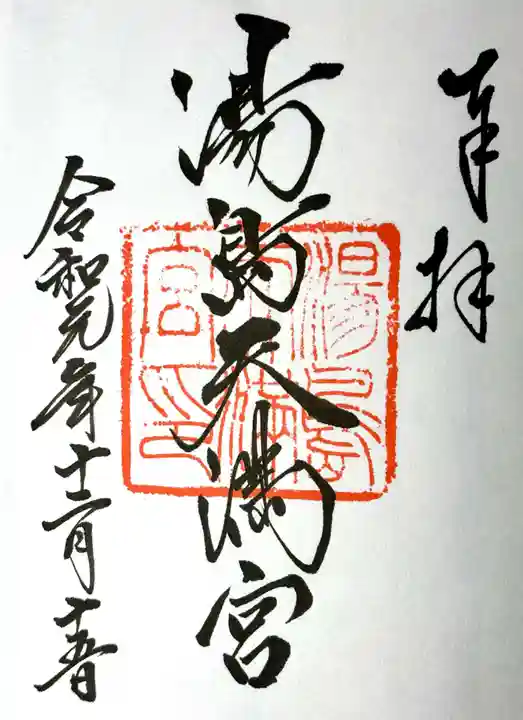 奉拝
湯島天満宮
湯島天満宮印
令和元年十二月十五日